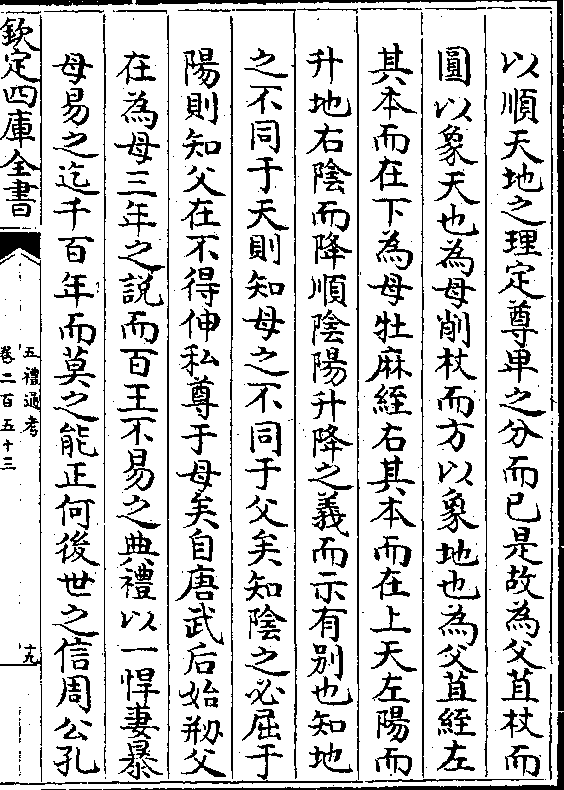 以順天地之理定尊卑之分而已是故為父苴杖而
圓以象天也為母削杖而方以象地也為父苴絰左
其本而在下為母牡麻絰右其本而在上天左陽而
升地右陰而降順陰陽升降之義而示有别也知地
之不同于天則知母之不同于父矣知陰之必屈于
陽則知父在不得伸私尊于母矣自唐武后始剏父
在為母三年之說而百王不易之典禮以一悍妻暴
母易之迄千百年而莫之能正何後世之信周公孔
欽定四庫全書
五禮通考
卷二百五十三
十九